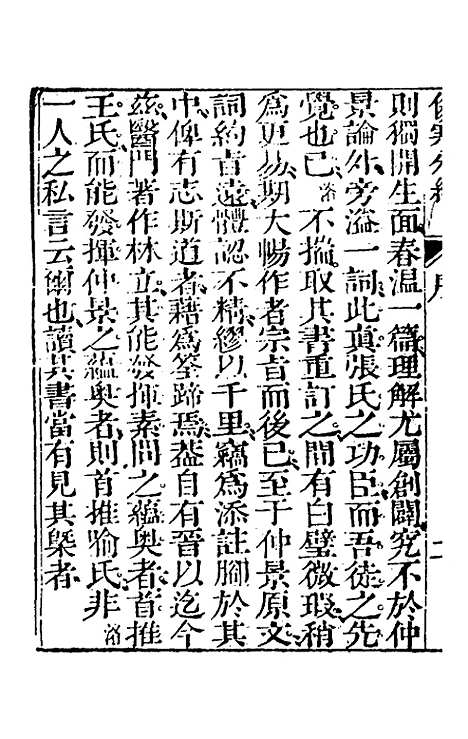 則獨開生面春温一篇理解尤屬創闢究不於仲
景論外旁溢一詞此真張氏之功臣而吾徒之先
覺也已洺不揣取其書重訂之間有白璧微瑕稍
為更易期大暢作者宗旨而後已至于仲景原文
詞約旨遠體認不精繆以千里竊為添註腳於其
中俾有志斯道者藉為筌蹄焉葢自有晉以迄今
茲醫門著作林立其能發揮素問之蘊奧者首推
王氏而能發揮仲景之蘊奧者則首推喻氏非洺
一人之私言云爾也讀其書當有見其槩者